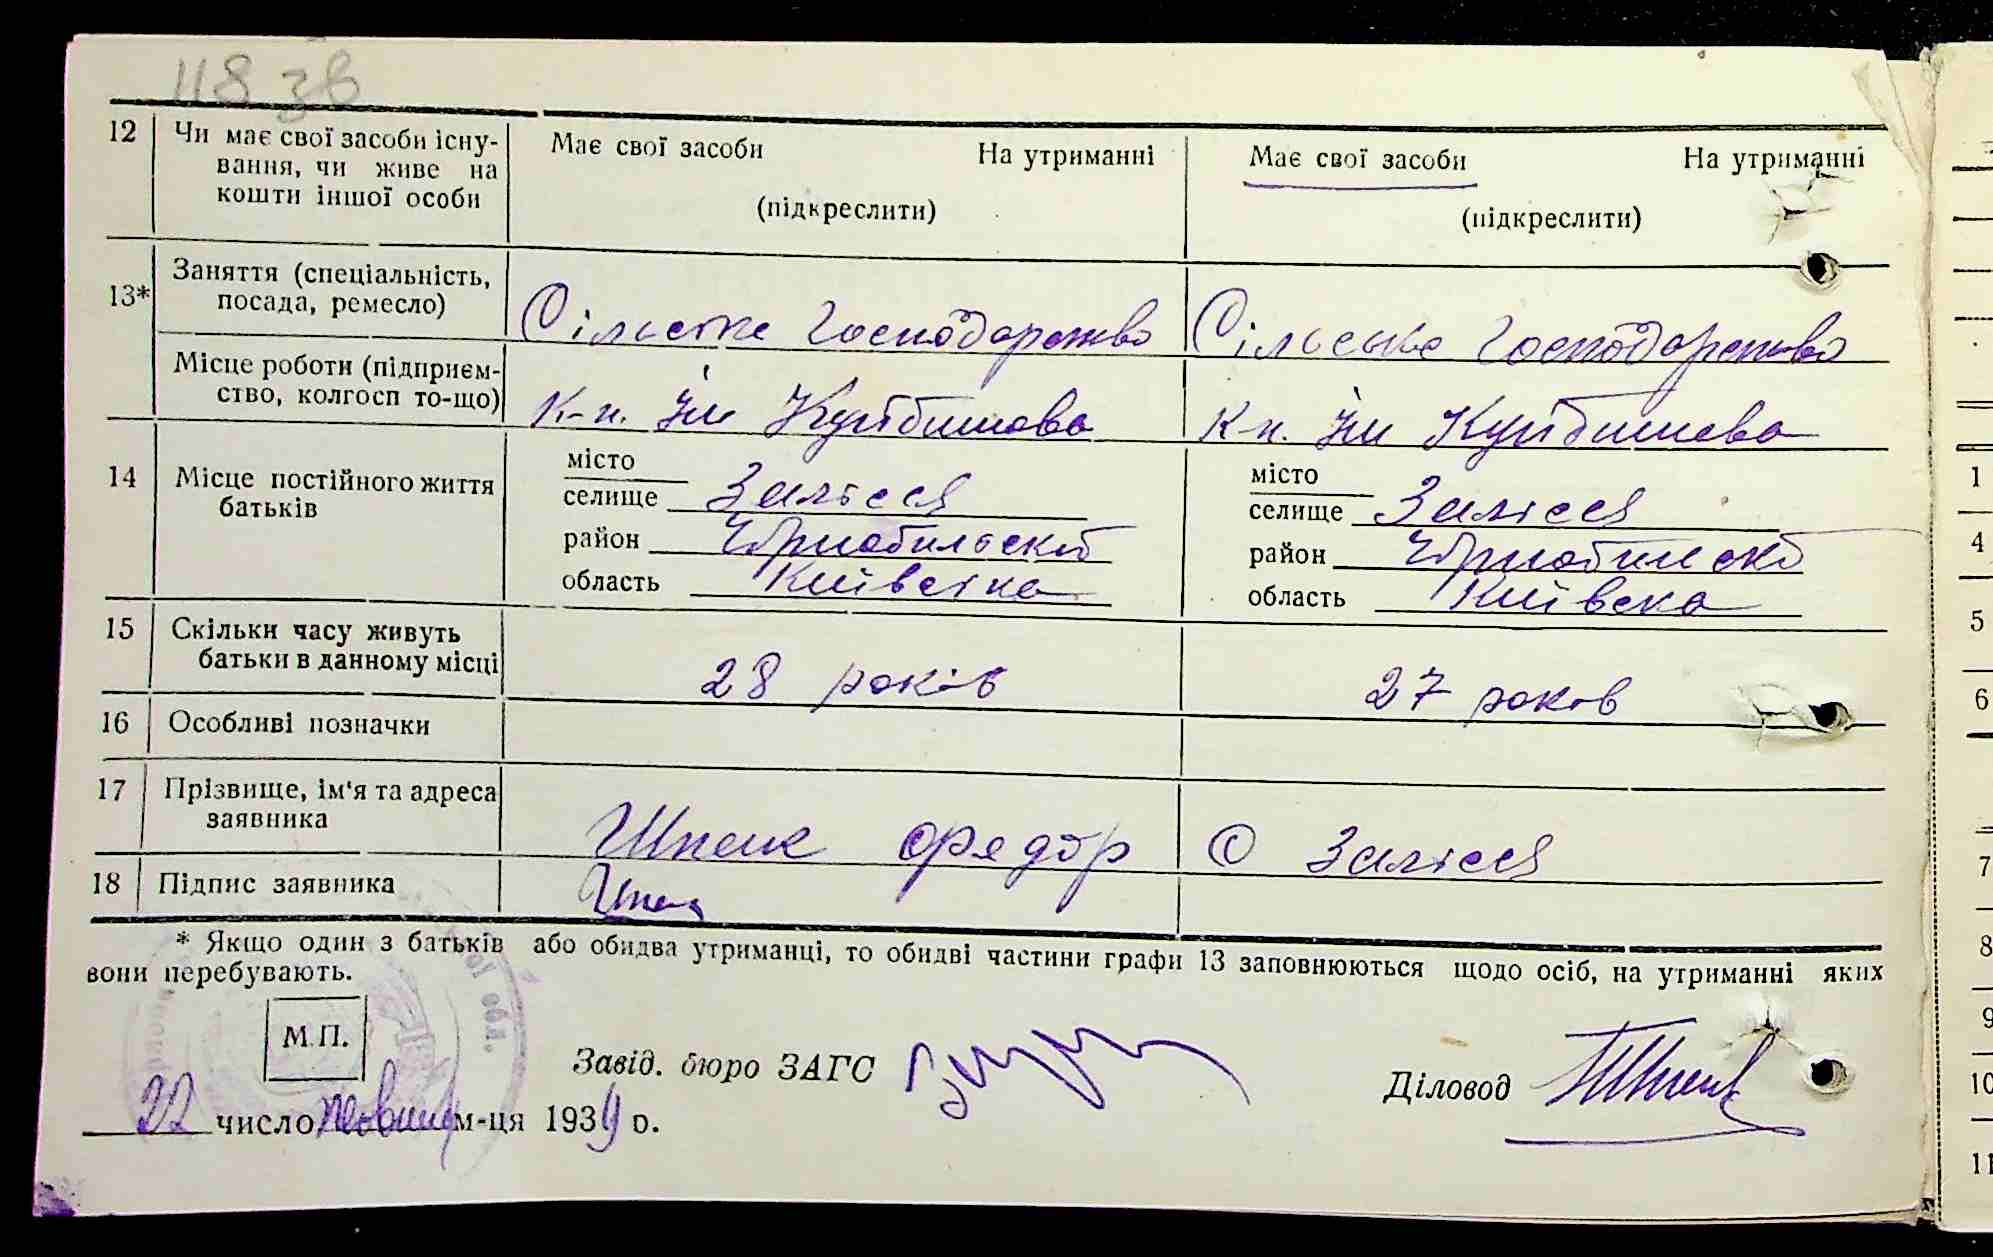 118 зв
12 Чи має свої засоби існу- Має свої засоби На утриманні Має свої засоби На утриманні
вання, чи живе на
кошти іншої особи (підкреслити) (підкреслити)
13* Заняття (спеціальність,
посада, ремесло) Сільське Господарство Сільське Господарство
Місце роботи (підприєм-
ство, колгосп то-що) К-п. Ім Куйбишева К-п. Ім Куйбишева
14 Місце постійного життя
батьків
місто місто
селище Залісся селище Залісся
район Чорнобильский район Чорнобилский
область Київська область Київска
15 Скільки часу живуть
батьки в данному місці 28 років 27 років
16 Особливі позначки
17 Прізвище, ім'я та адреса
заявника Шпак Фядор С Залісся
18 Підпис заявника
* Якщо один з батьків або обидва утриманці, то обидві частини графи 13 заповнюються щодо осіб, на утриманні яких
вони перебувають.
М.П.
Завід. бюро ЗАГС Діловод
22 число жовтня м-ця 1939 р.
1
4
5
6
7
8
9
10
11